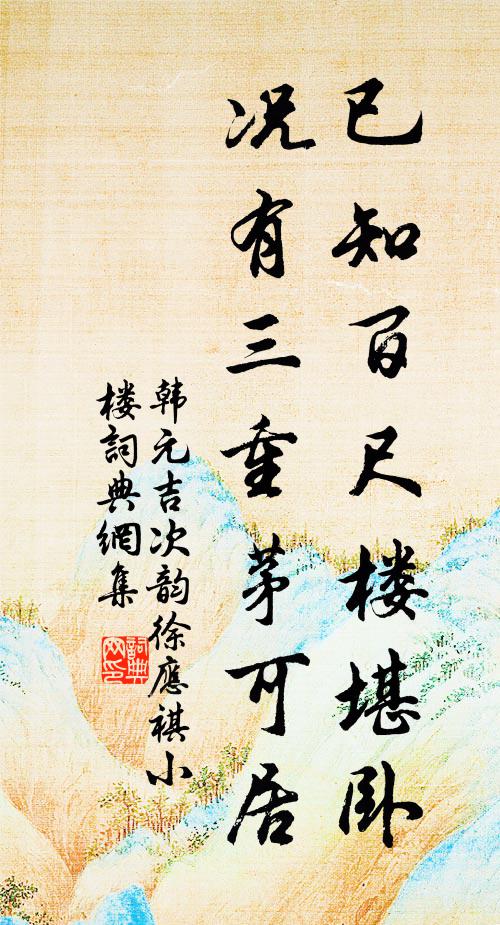 已知百尺楼堪卧
况有三重茅可居
韩元吉次韵徐應祺小
楼詞典網集
詞典
网印